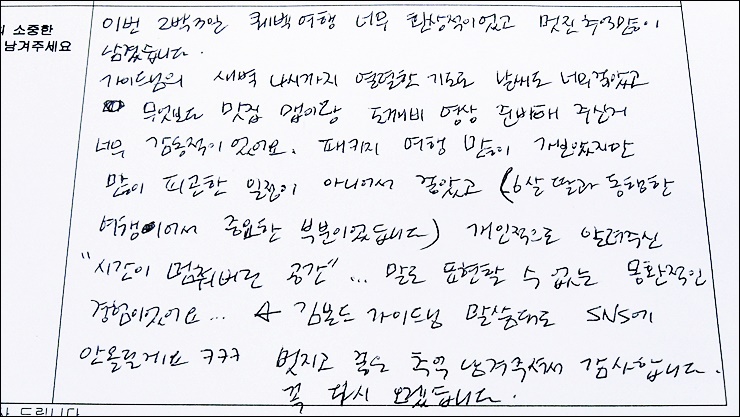 의 소중한
남겨주세요
이번 2박3일 퀘백여행 너무 환상적이었고 멋진 추억많이
남겼습니다.
가이드님의 새벽 4시까지 열렬한 기도로 날씨도 너무좋았고
무엇보다 맛집 맵이랑 도깨비 영상 준비해 주신거
너무 감동적이었어요. 패키지 여행 많이 가보았지만
많이 피곤한 일정이 아니어서 좋았고 (6살 딸과 동행한
여행이어서 중요한 부분이었습니다) 개인적으로 알려주신
"시간이 멈춰버린 공간"... 말로 표현할 수 없는 몽환적인
경험이었어요... 가이드님 말씀대로 SNS에
안올릴게요 ㅋㅋㅋ 멋지고 좋은 추억 남겨주셔서 감사합니다.
꼭 다시 오겠습니다.
드립니다